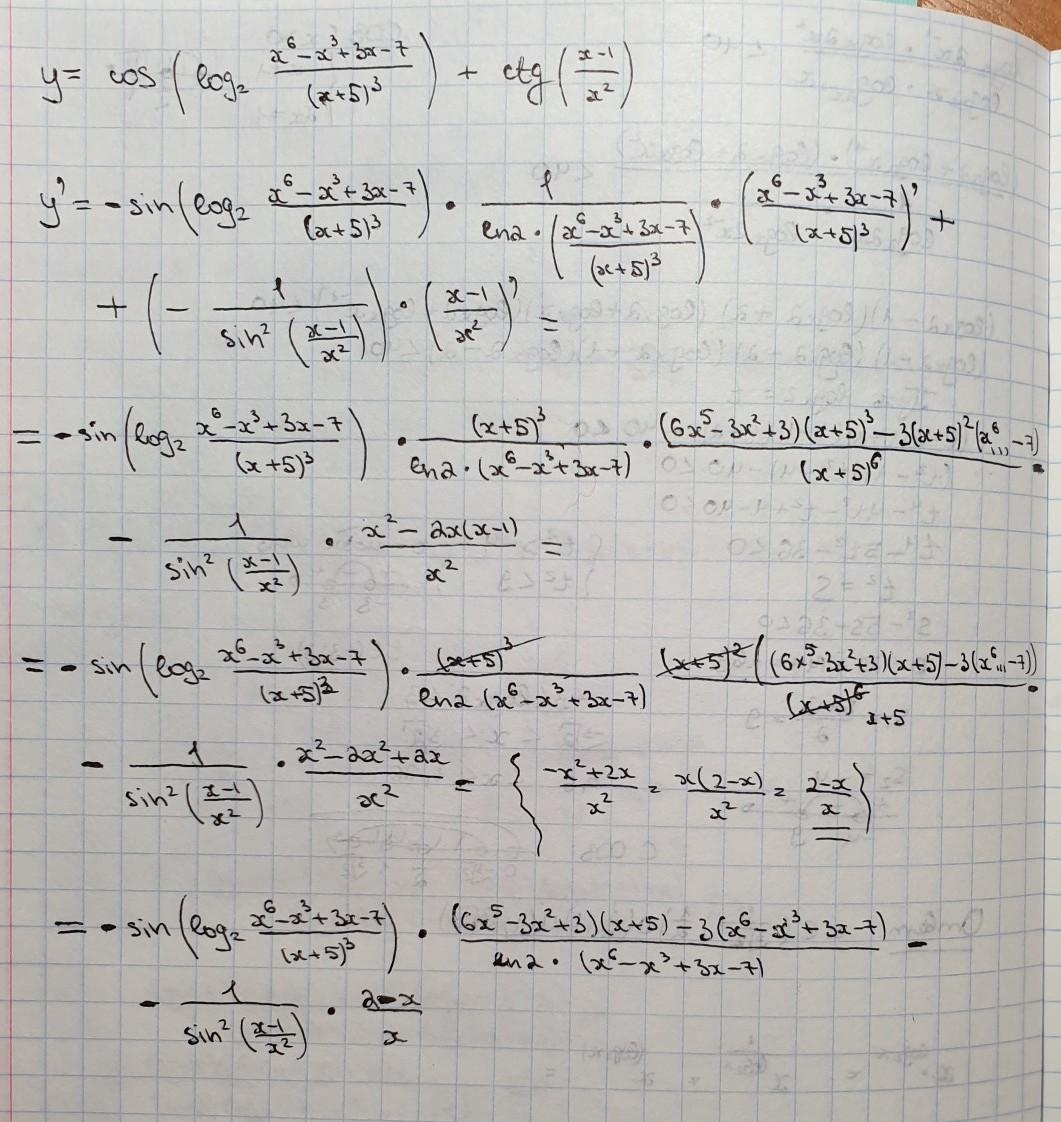 y = cos(log₂ (x⁶ - x³ + 3x - 7)/(x+5)³) + ctg((x-1)/x²)
y' = -sin(log₂ (x⁶ - x³ + 3x - 7)/(x+5)³) · 1/(ln2 · ((x⁶ - x³ + 3x - 7)/(x+5)³)) · ((x⁶ - x³ + 3x - 7)/(x+5)³)' +
+ (- 1/(sin² ((x-1)/x²))) · ((x-1)/x²)' =
= -sin(log₂ (x⁶ - x³ + 3x - 7)/(x+5)³) · (x+5)³/(ln2 · (x⁶ - x³ + 3x - 7)) · ((6x⁵ - 3x² + 3)(x+5)³ - 3(x+5)²(x⁶...-7))/(x+5)⁶ ·
- 1/(sin² ((x-1)/x²)) · (x² - 2x(x-1))/x² =
= - sin(log₂ (x⁶ - x³ + 3x - 7)/(x+5)³) · (x+5)³/(ln2 (x⁶ - x³ + 3x - 7)) (x+5)²((6x⁵ - 3x² + 3)(x+5) - 3(x⁶...-7))/((x+5)⁶ x+5) ·
- 1/(sin² ((x-1)/x²)) · (x² - 2x² + 2x)/x² = { (-x² + 2x)/x² = x(2-x)/x² = (2-x)/x }
= - sin(log₂ (x⁶ - x³ + 3x - 7)/(x+5)³) · ((6x⁵ - 3x² + 3)(x+5) - 3(x⁶ - x³ + 3x - 7))/(ln2 · (x⁶ - x³ + 3x - 7)) -
- 1/(sin² ((x-1)/x²)) · (2-x)/x